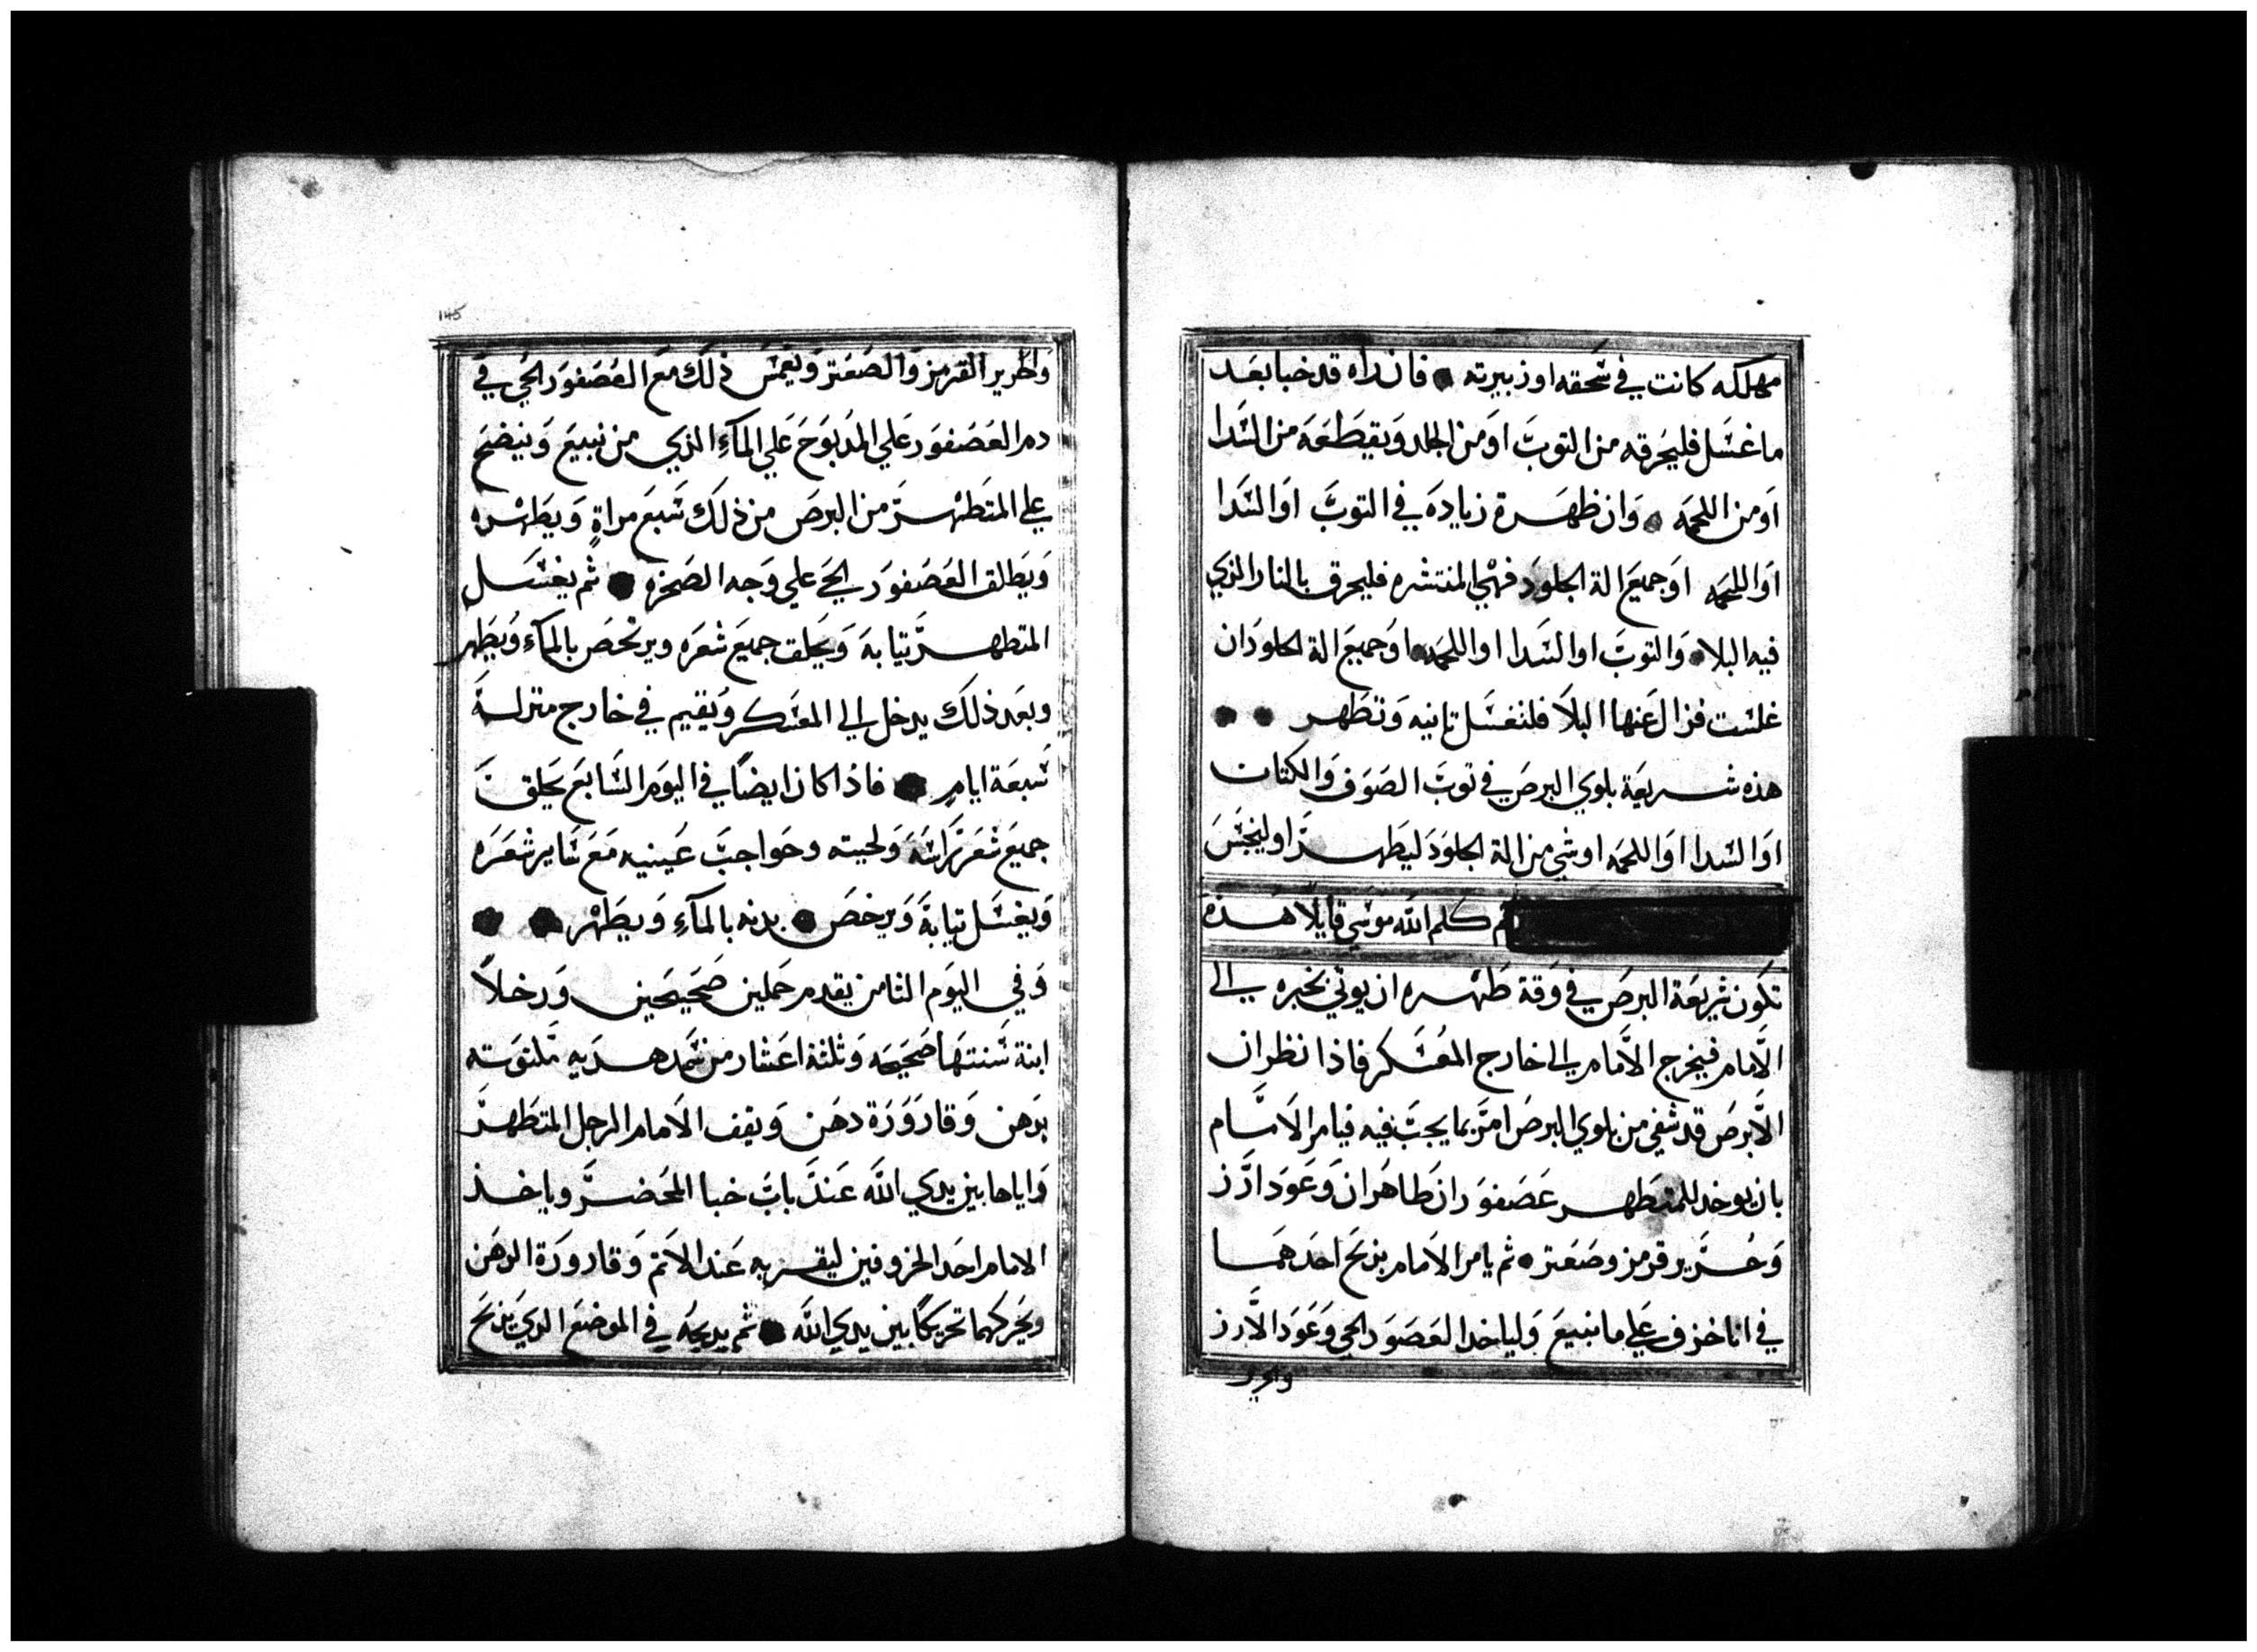 مهلكه كانت في سحقه او زبيرته • فان راه قد خبا بعد
ما غسل فليحرقه من التوب او من الجلد ويقطعه من السدا
او من اللحمه • وان ظهرة زياده في التوب او السدا
او اللحمه او جميع الة الجلود فهي المنتشره فليحرق بالنار الذي
فيه البلا • والتوب او السدا او اللحمه او جميع الة الجلود ان
غلست فزال عنها البلا فلتغسل تانيه وتطهر • •
هذه شريعة بلوي البرص في توب الصوف والكتان
او السدا او اللحمه او شي من الة الجلود ليطهر او لينجس
ثم كلم الله موسي قايلا هذه
تكون شريعة البرص في وقة طهره ان يوتي بخبره الي
الامام فيخرج الامام الي خارج المعسكر فاذا نظر ان
الابرص قد شفي من بلوي البرص امر بما يجب فيه فيامر الامام
بان يوخد للمتطهر عصفوران طاهران وعود ارز
وحرير قرمز وصعتر • ثم يامر الامام بذبح احدهما
في انا خزف علي ما نبيع ولياخد العصور الحي وعود الارز
والحرير
145
والحرير القرمز والصعتر ويغمس ذلك مع العصفور الحي في
دم العصفور علي المدبوح علي المآء الذي من نبيع وينضح
علي المتطهر من البرص من ذلك سبع مراة ويطهره
ويطلق العصفور الحي علي وجه الصحره • ثم يغسل
المتطهر تيابه ويحلق جميع شعره ويرتحص بالمآء ويطهر
وبعد ذلك يدخل الي المعسكر ويقيم في خارج منزله
سبعة ايام • فاذا كان ايضا في اليوم السابع يحلق
جميع شعر راسه ولحيته وحواجب عينيه مع ساير شعره
ويغسل تيابه ويرخص • بدنه بالمآء ويطهر • •
وفي اليوم الثامن يقدم حملين صحيحين ورخلا
ابنة سنتها صحيحه وثلثة اعشار من سمد هديه ملتوته
بدهن وقارورة دهن ويقف الامام الرجل المتطهر
واياها بين يدي الله عند باب خبا المحضر وياخذ
الامام احد الخروفين ليقربه عند الاتم وقارورة الدهن
ويحركهما تحريكا بين يدي الله • ثم يدبحه في الموضع الدي يذبح